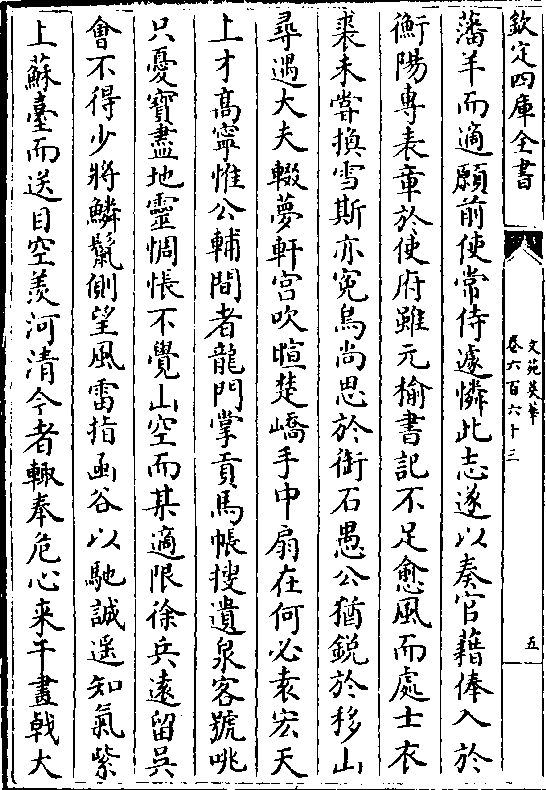 欽定四庫全書
文苑英華
卷六百六十三
五
藩羊而適願前使常侍遽憐此志遂以奏官藉俸入於
衡陽専表章於使府雖元榆書記不足愈風而處士衣
裘未嘗換雪斯亦寃鳥尚思於銜石愚公猶鋭於移山
尋遇大夫輟夢軒宫吹暄楚嶠手中扇在何必袁宏天
上才髙寧惟公輔間者龍門掌貢馬帳搜遺泉客號咷
只憂寳盡地靈惆悵不覺山空而某適限徐兵逺留吴
㑹不得少將鱗鬛側望風雷指凾谷以馳誠遥知氣紫
上蘇臺而送目空羨河清今者輙奉危心来干畫㦸大